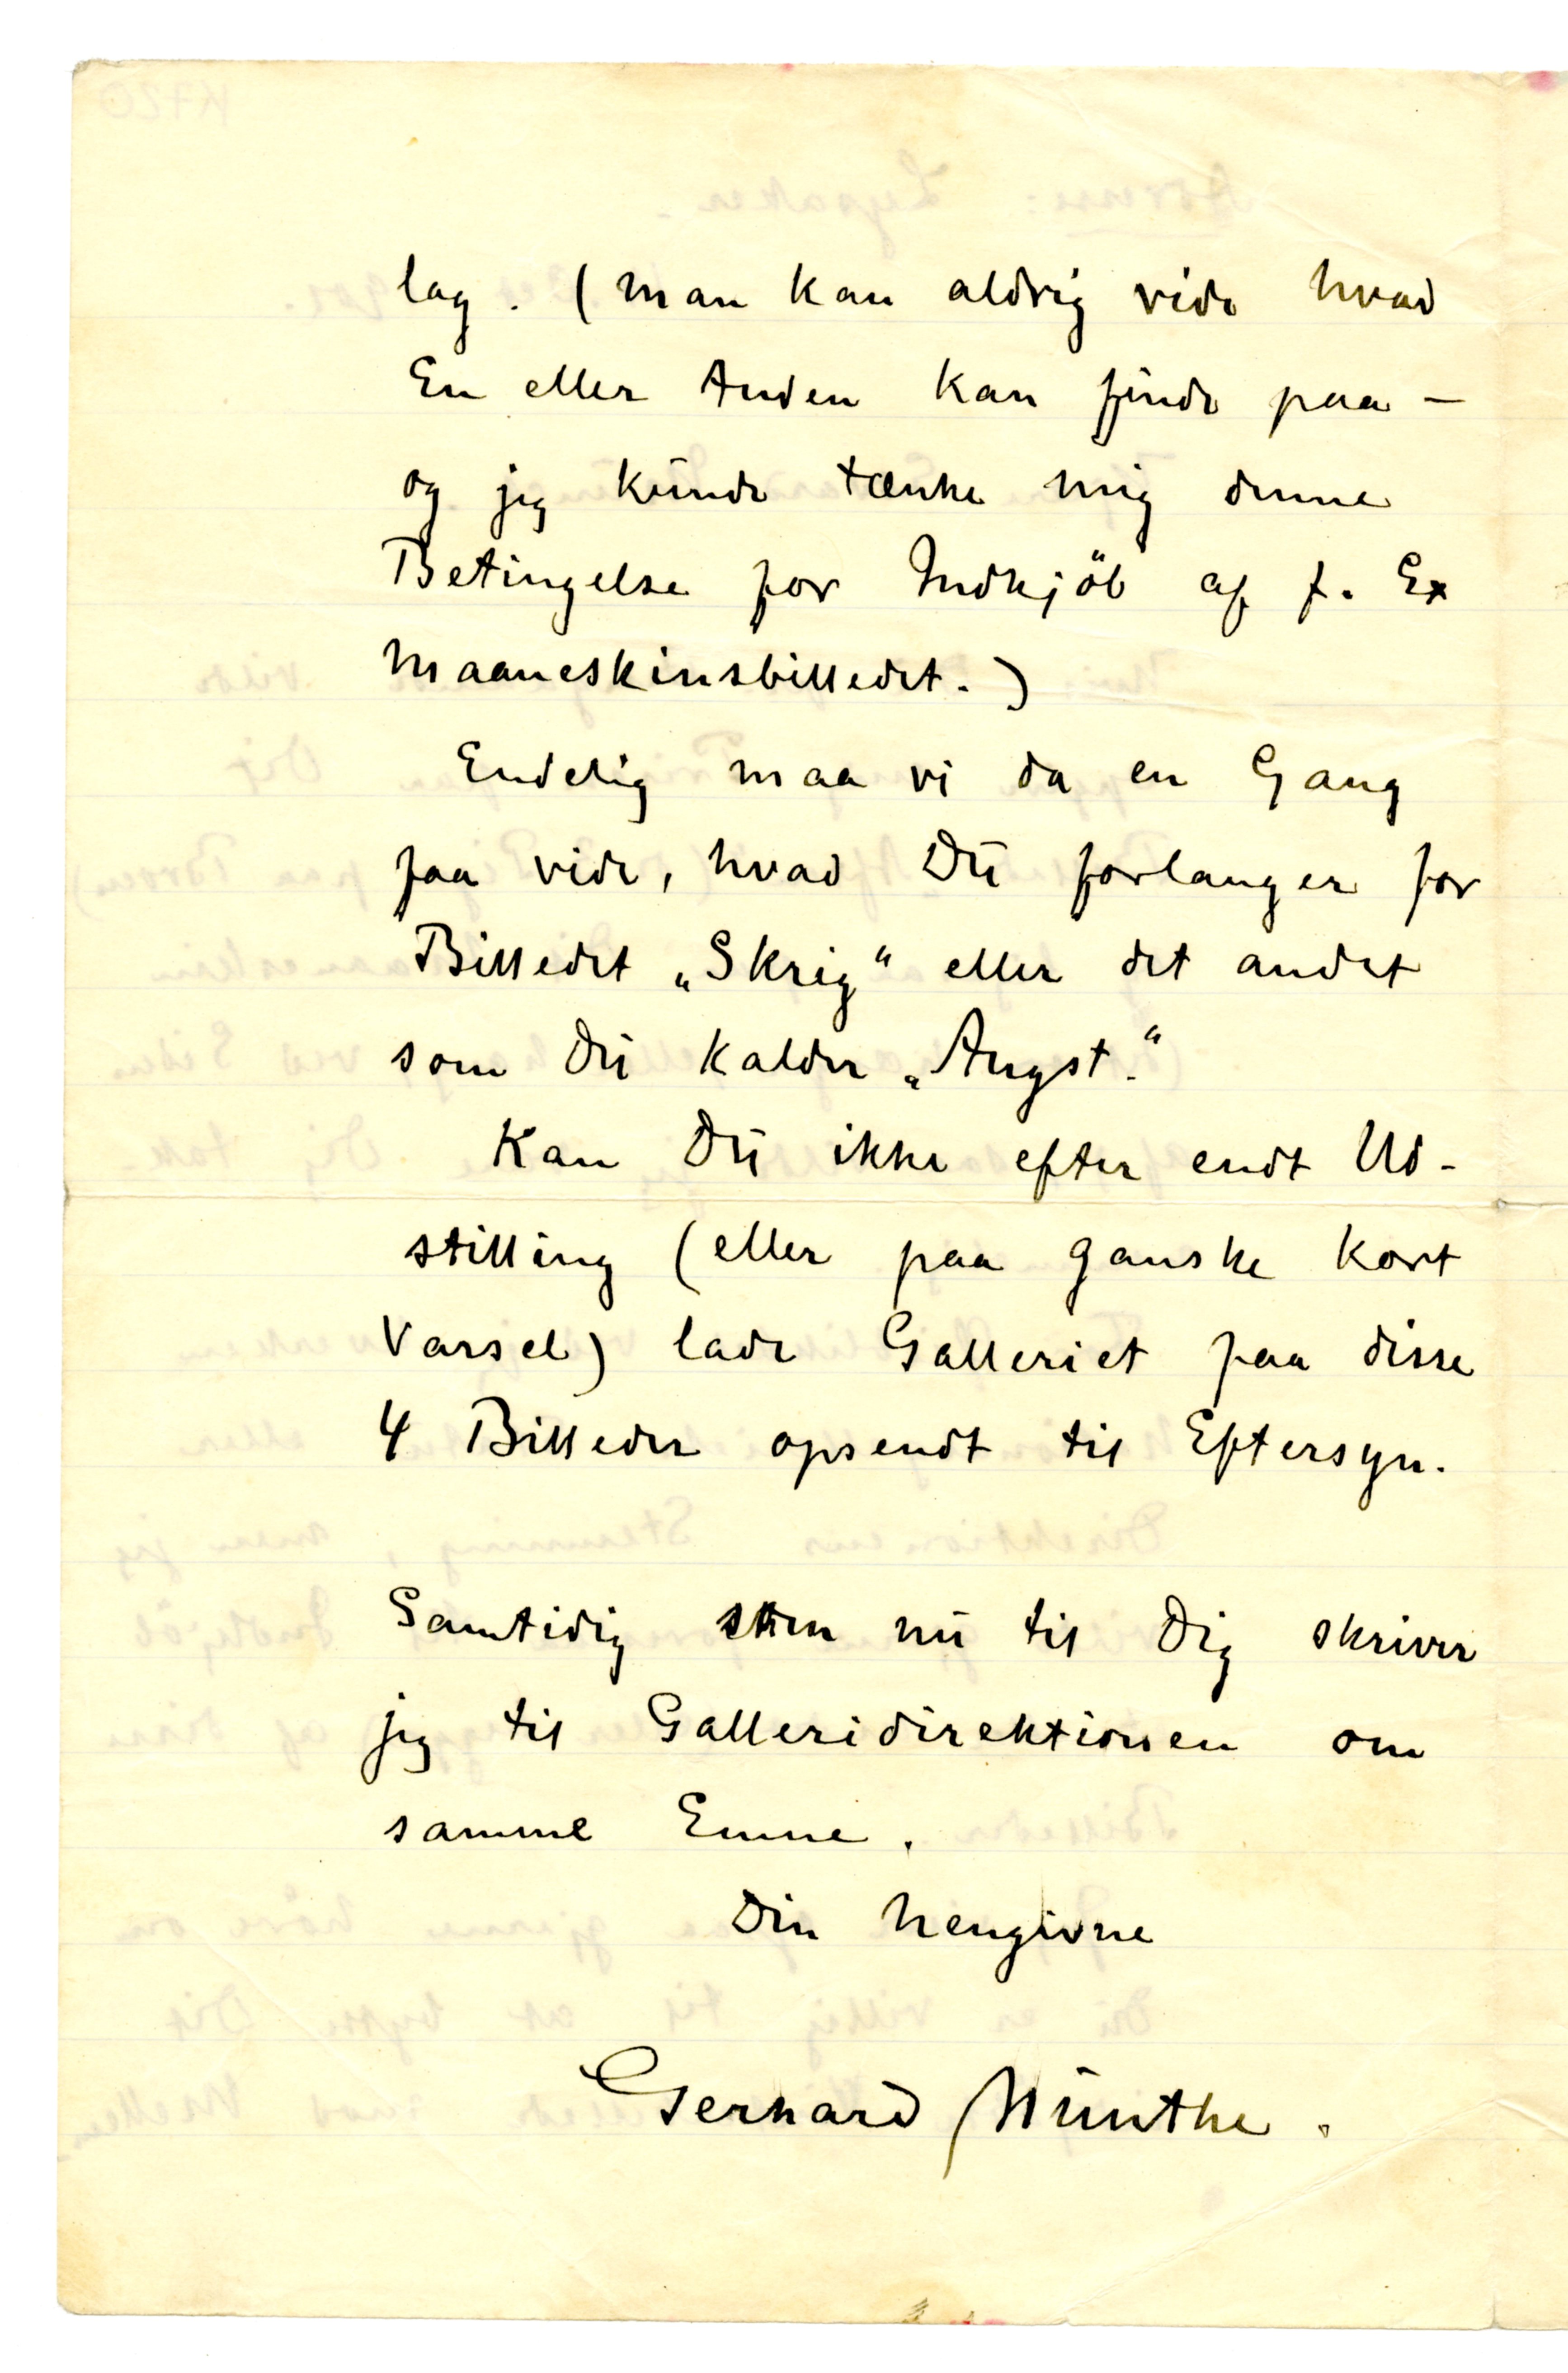 lag. (man kan aldrig vide hvad
En eller Anden kan finde paa –
og jeg kunde tænke mig denne
Betingelse for Indkjöb af f. Ex
Maaneskinsbilledet.)
Endelig maa vi da en Gang
faa vide, hvad Du forlanger for
Billedet „Skrig“ eller det andet
som Du kalder „Angst.“
Kan Du ikke efter endt Ud-
stilling (eller paa ganske kort
Varsel) lade Galleriet faa disse
4 Billeder opsendt til Eftersyn.
Samtidig som nu til Dig skriver
jeg til Galleridirektionen om
samme Emne.
Din hengivne
Gerhard Munthe.